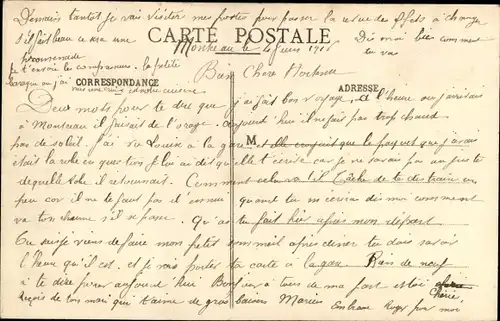 Demain tantôt je vais visiter mes postes pour passer la revue des effets à change
s'il fait beau ce sera une
promenade
CARTE POSTALE
Dis moi bien comment
tu vas
Montereau le 4 Juin
je t'envoie les comparaisons la petite
Bien Chère
CORRESPONDANCE
ADRESSE
Deux mots pour te dire que j'ai fait bon voyage. à l'heure où j'arrivais
à Montereau il faisait de l'orage. aujourd'hui il ne fait pas trop chaud
pas de soleil. J'ai vu Louise à la gare
M
et elle croyait que le paquet que j'avais
était la robe en question je lui ai dit qu'elle t'écrise car je ne savais pas au juste
de quelle robe il retournait. Comment cela va t'il tâche de te distraire un
peu car il ne te faut pas d'ennui quand tu m'écriras dis moi comment
va ton rhume s'il se passe. Qu'as tu fait hier après mon départ
Ou suis je viens de faire mon petit sommeil après dîner tu dois savoir
l'heure qu'il est. et je vais porter ta carte à la gare Rien de neuf
à te dire pour aujourd'hui Bonjour à tous de ma part et toi Chérie,
reçois de ton mari qui t'aime de gros baisers Marius
Embrasse Roger pour moi